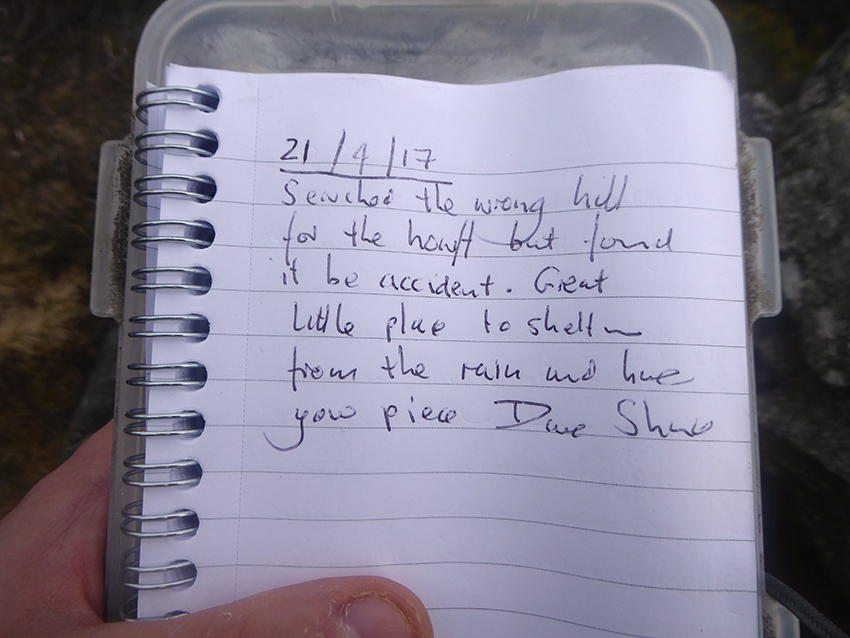 21/4/17
Searched the wrong hill
for the howff but found
it be accident. Great
little place to shelter
from the rain and have
your piece Dave